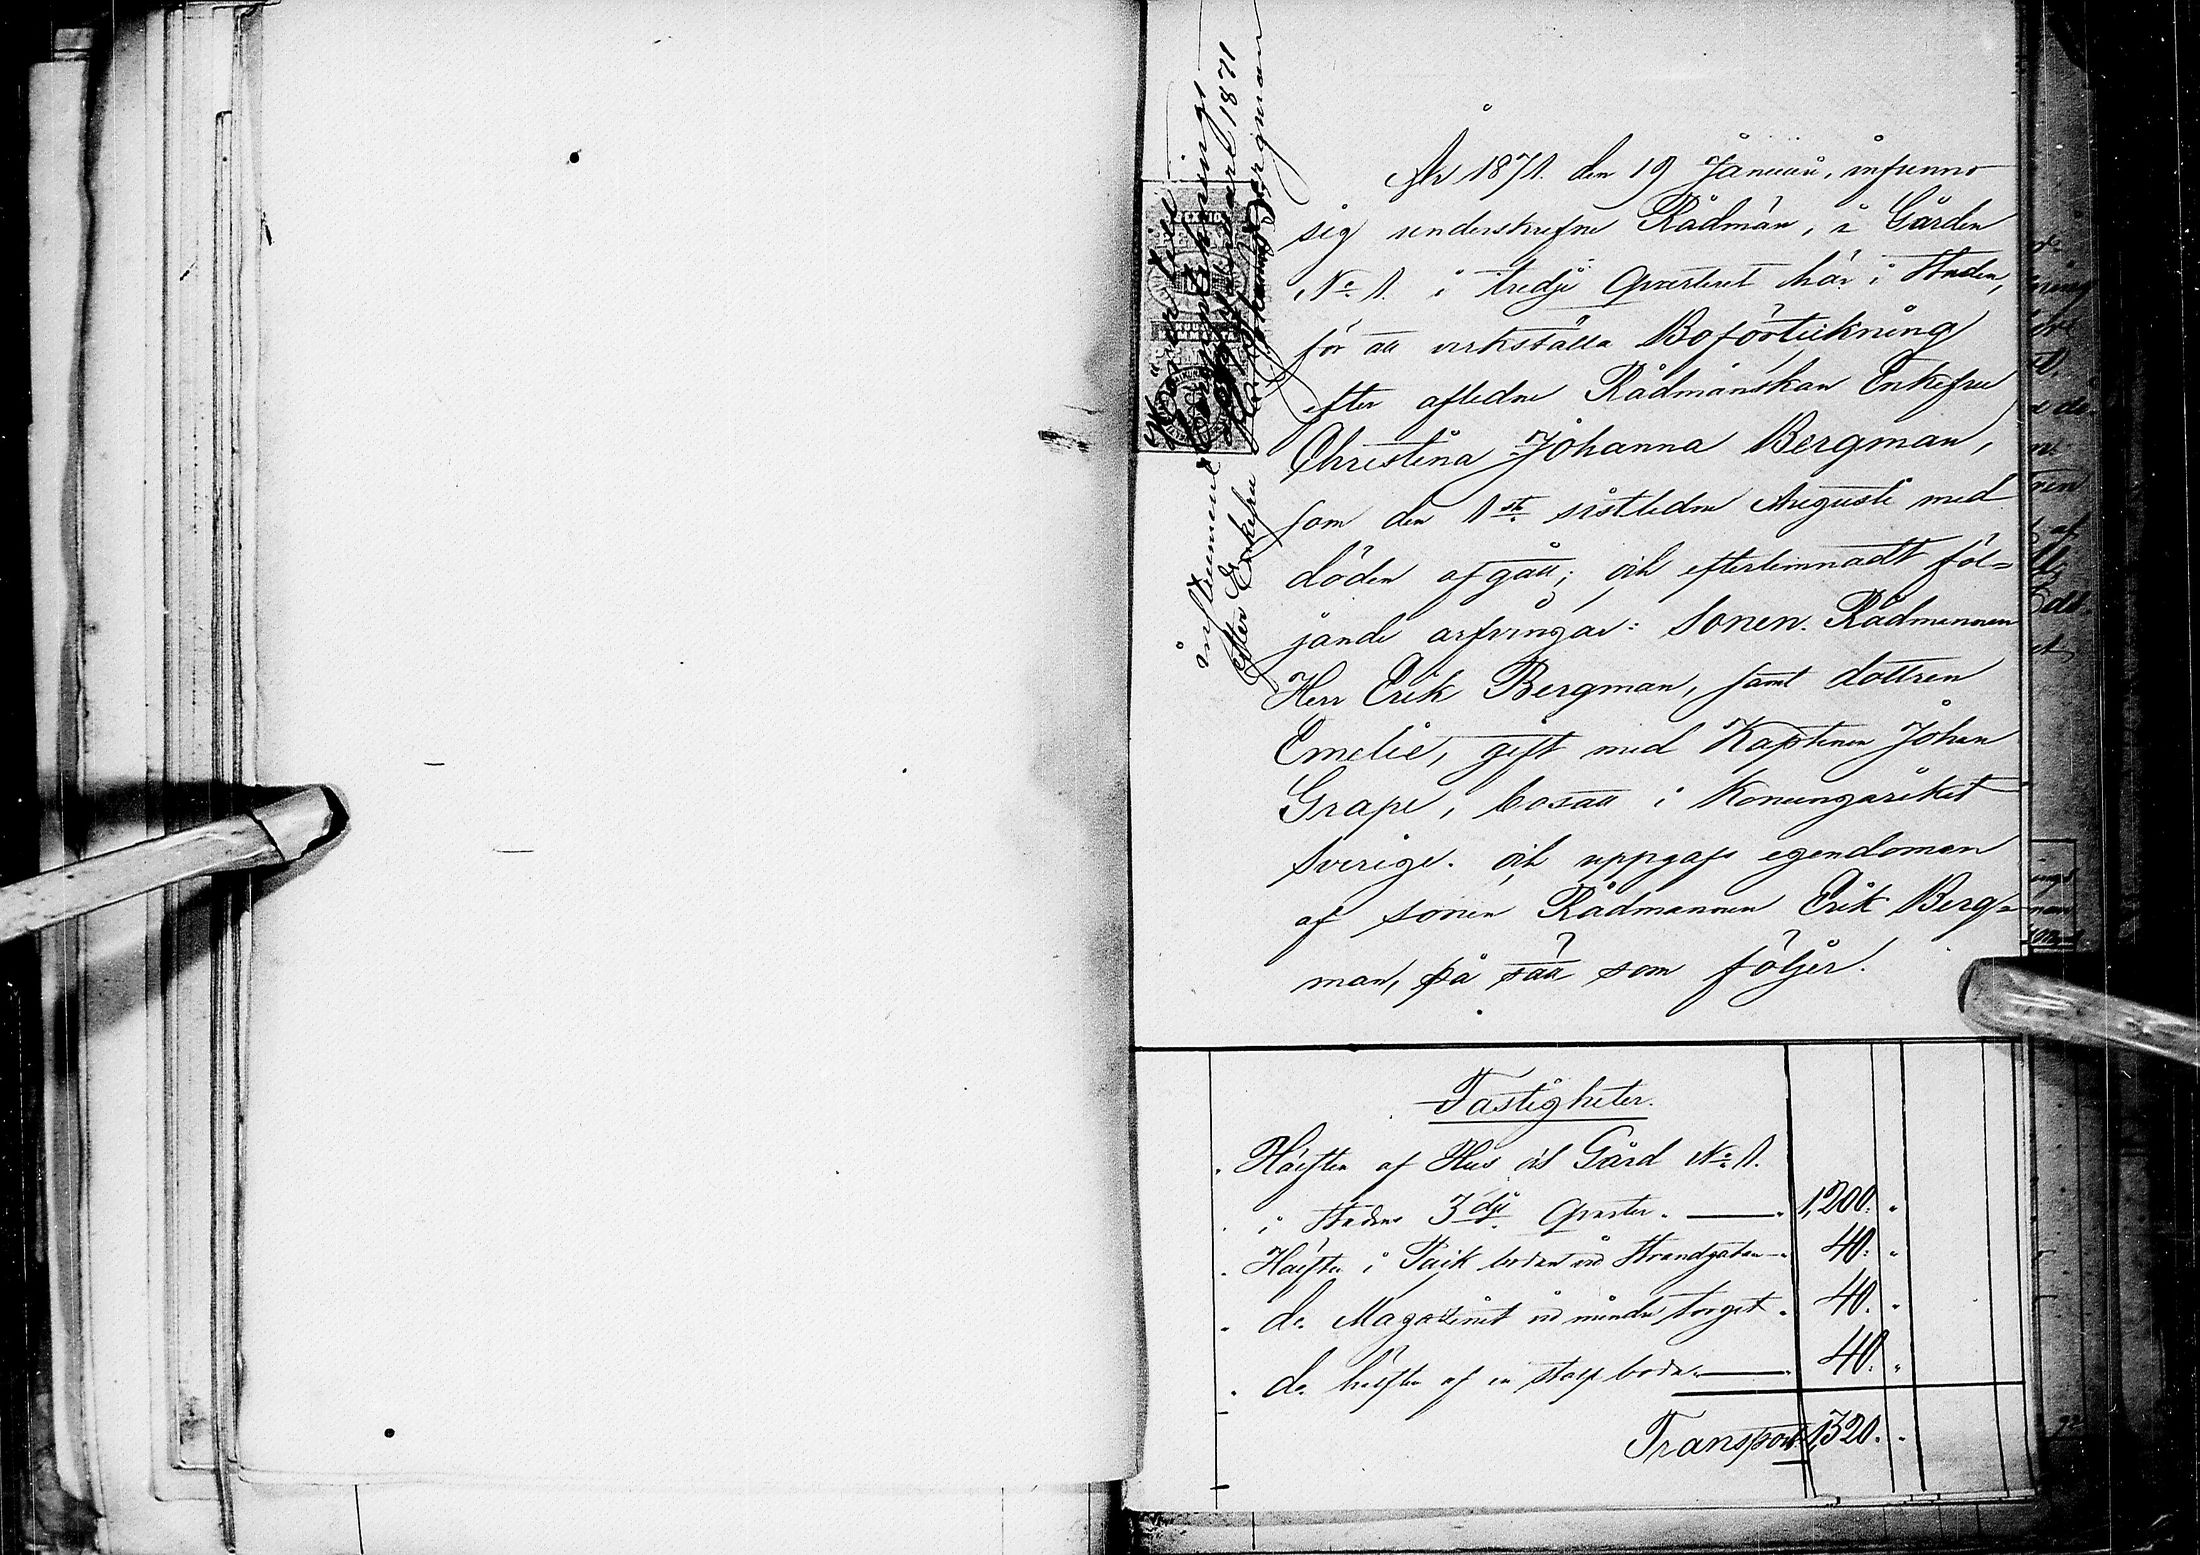 År 1871. den 19 Januari, infunno
sig underskrefne Rådmän, i Gården
No 1. i tredje qvarteret här i Staden,
för att verkställa Boförteckning
efter afledne Rådmanskan Enkefru
Christina Johanna Bergman,
som den 1ste sistledne Augusti med
döden afgått; och efterlemnadt föl=
jande arfvingar: Sonen. Rådmannen
Herr Erik Bergman, samt dottren
Emelie, gift med Kaptenen Johan
Grape, bosatt i Konungariket
Sverige. och uppgafs egendomen
af sonen Rådmannen Erik Berg=
man, på sätt som följer.
instrument
efter Enkefru Christina Johanna Bergman
1871
Fastigheter.
Hälften af Hus och Gård No 1.
i Stadens 3dje Qvarter. 1,200.
Hälften i Packboden vid Strandgatan 40.
do Magazinet vid mindre torget. 40.
do hälften af en bod 40.
Transport 1,320.